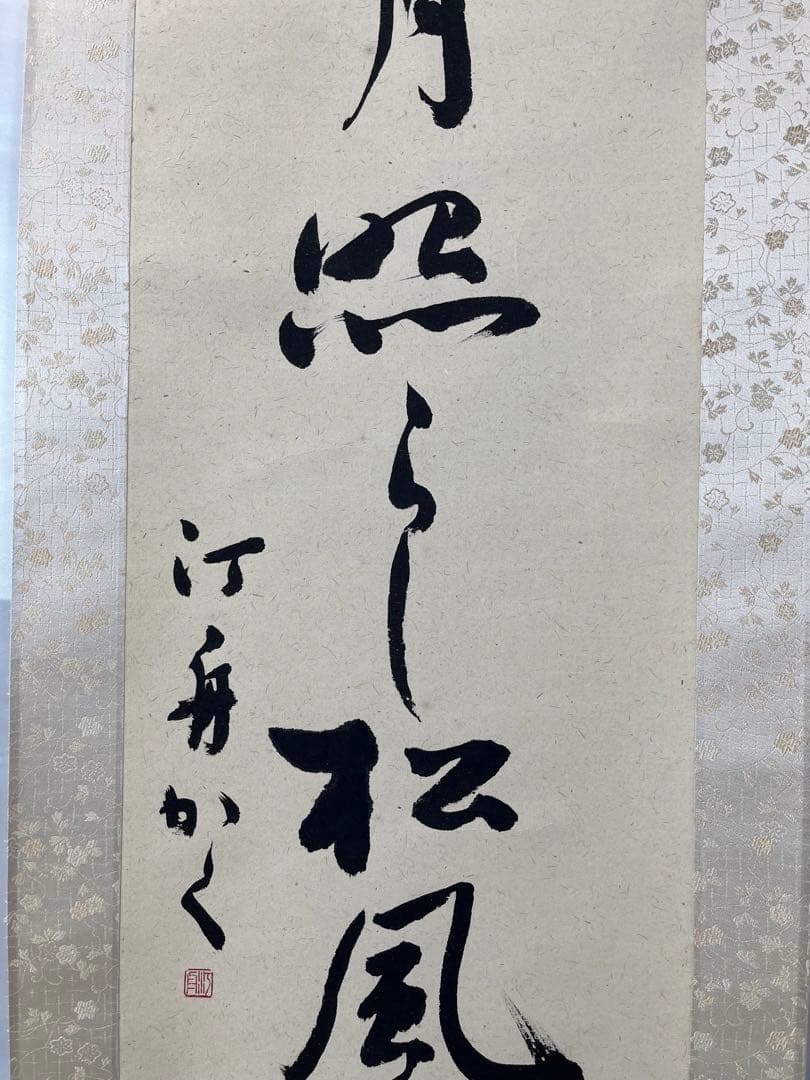 月照らし松風
汀舟かく